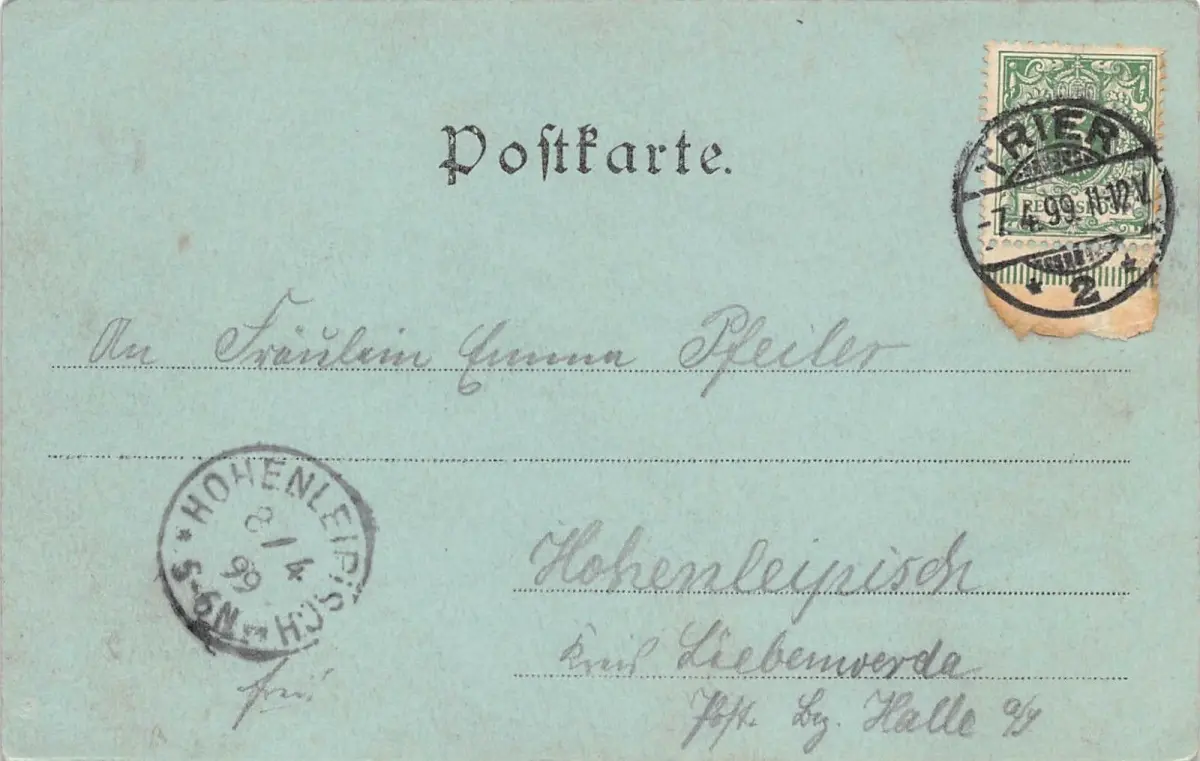 Postkarte.
TRIER
7.4.99.11-12V.
* 2 *
REICHSPOST
An Fräulein Emma Pfeiler
* HOHENLEIPISCH *
8/4
99
5-6N
Hohenleipisch
Kreis Liebenwerda
frei!
Post. Bz. Halle a/S